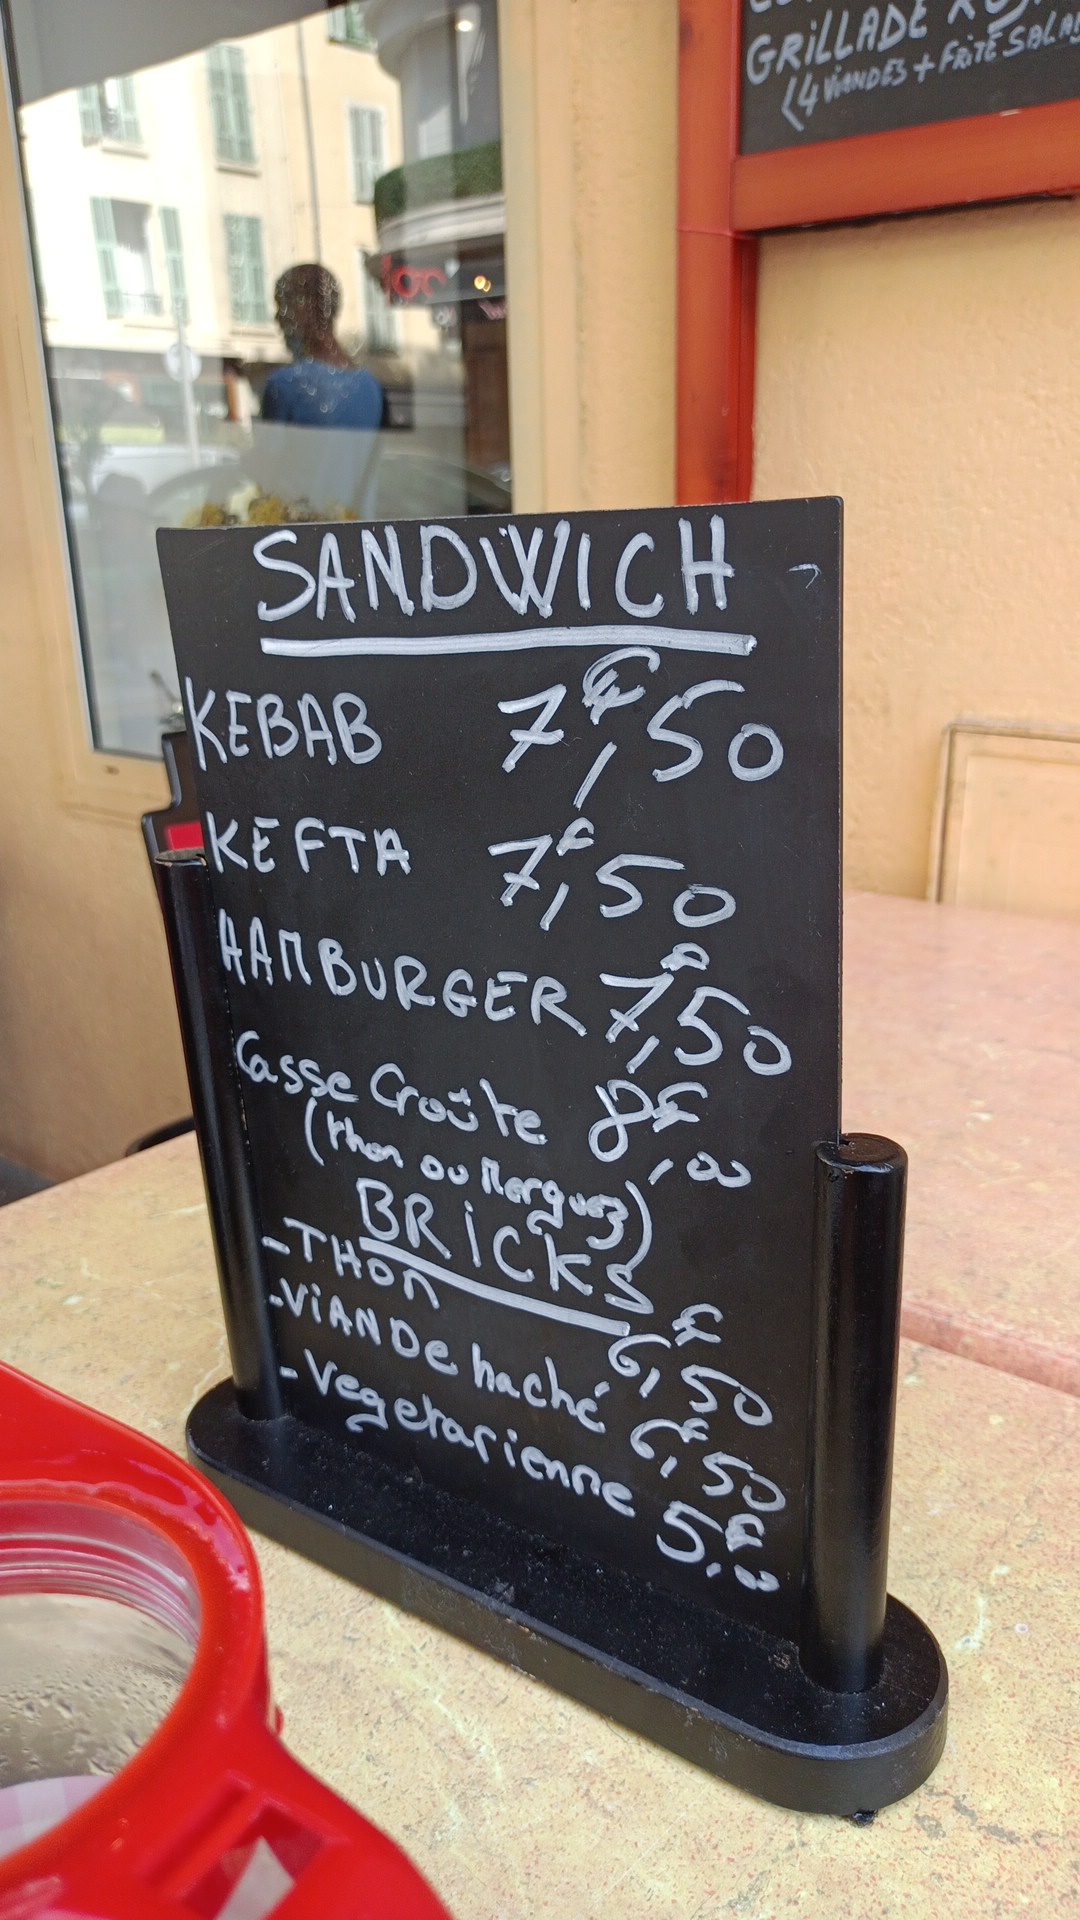 GRILLADE
(4 VIANDES + FRITE SALAD
SANDWICH
KEBAB 7€,50
KEFTA 7€,50
HAMBURGER 7€,50
Casse Croûte 8€,00
(thon ou Merguez)
BRICKS
- THON 6€,50
- VIANDE haché 6€,50
- Vegetarienne 5€,00